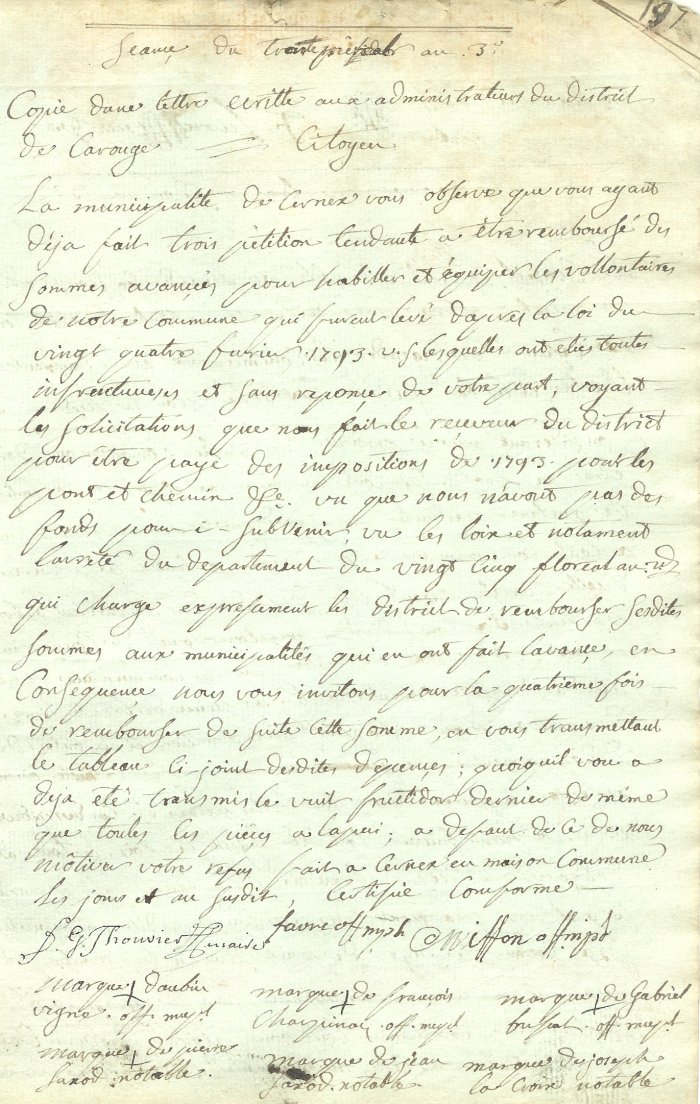 191
Seance du trente au 3e
Copie dune lettre ecritte aux administrateurs du district
de Carouge = Citoyen
La municipalité de Cernex vous observe que vous ayant
déja fait trois pétition tendante a être remboursé des
sommes avancées pour habiller et équiper les vollontaires
de notre Commune qui furent levé dapres la loi du
vingt quatre fevrier .1793. v.s. lesquelles ont etés toutes
infructueuses et sans reponse de votre part, voyant
les solicitations que nous fait le reçeveur du district
pour être payé des impositions de .1793. pour les
pont et chemin &c. vu que nous navont pas des
fonds pour i - subvenir, vu les loix et notament
larreté du departement du vingt cinq floreal an
qui charge expressement les district de rembourser sesdites
sommes aux municipalités qui en ont fait lavançe, en
Conséquence nous vous invitons pour la quatrieme fois
de rembourser de suite cette somme, en vous transmettant
le tableau ci joint desdites dépençes ; quoiquil vou a
deja été transmis le vuit fructidor dernier de même
que toutes les piéçes a lapui ; a defaut de ce de nous
môtiver votre refus fait a Cernex en maison Commune
les jour et an susdit, Certifié Conforme —
J. G. Thouvier favre off mph off mpl
marque † daubin marque † de françois marque † de Gabriel
vigne. off. mupl off. mupl bussat. off mupl
marque † de pierre marque de jean marque de joseph
saxod. notable. saxod. notable la Croix notable